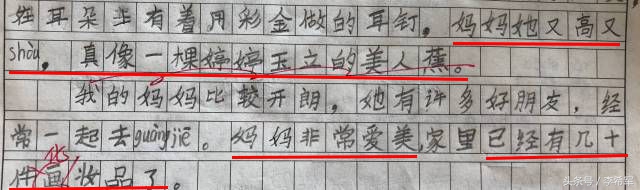 姓耳朵上有着用彩金做的耳钉。妈妈她又高又
shòu，真像一棵婷婷玉立的美人蕉。
我的妈妈比较开朗，她有许多好朋友，经
常一起去guàngjiē。妈妈非常爱美，家里已经有几十
化
件画妆品了。
头条号/李希军